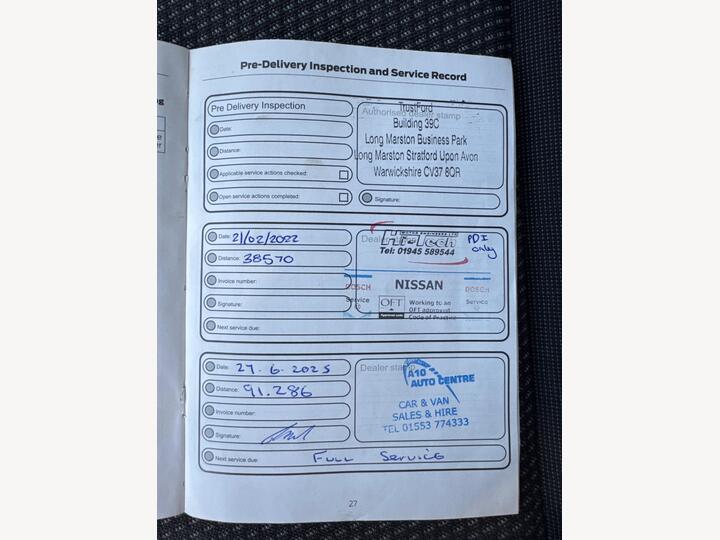 Pre-Delivery Inspection and Service Record
Pre Delivery Inspection
Date:
Distance:
Applicable service actions checked:
Open service actions completed:
Authorised dealer stamp
TrustFord
Building 39C
Long Marston Business Park
Long Marston Stratford Upon Avon
Warwickshire CV37 8QR
Signature:
Date: 21/02/2022
Distance: 38570
Invoice number:
Signature:
Next service due:
Hi-Tech
Tel: 01945 589544
PDI
only
NISSAN
BOSCH
Service
OFT
Working to an
OFT approved
Code of Practice
BOSCH
Service
Date: 27.6.2025
Distance: 91.286
Invoice number:
Signature:
Next service due: Full Service
Dealer stamp
A10
AUTO CENTRE
CAR & VAN
SALES & HIRE
TEL 01553 774333
27